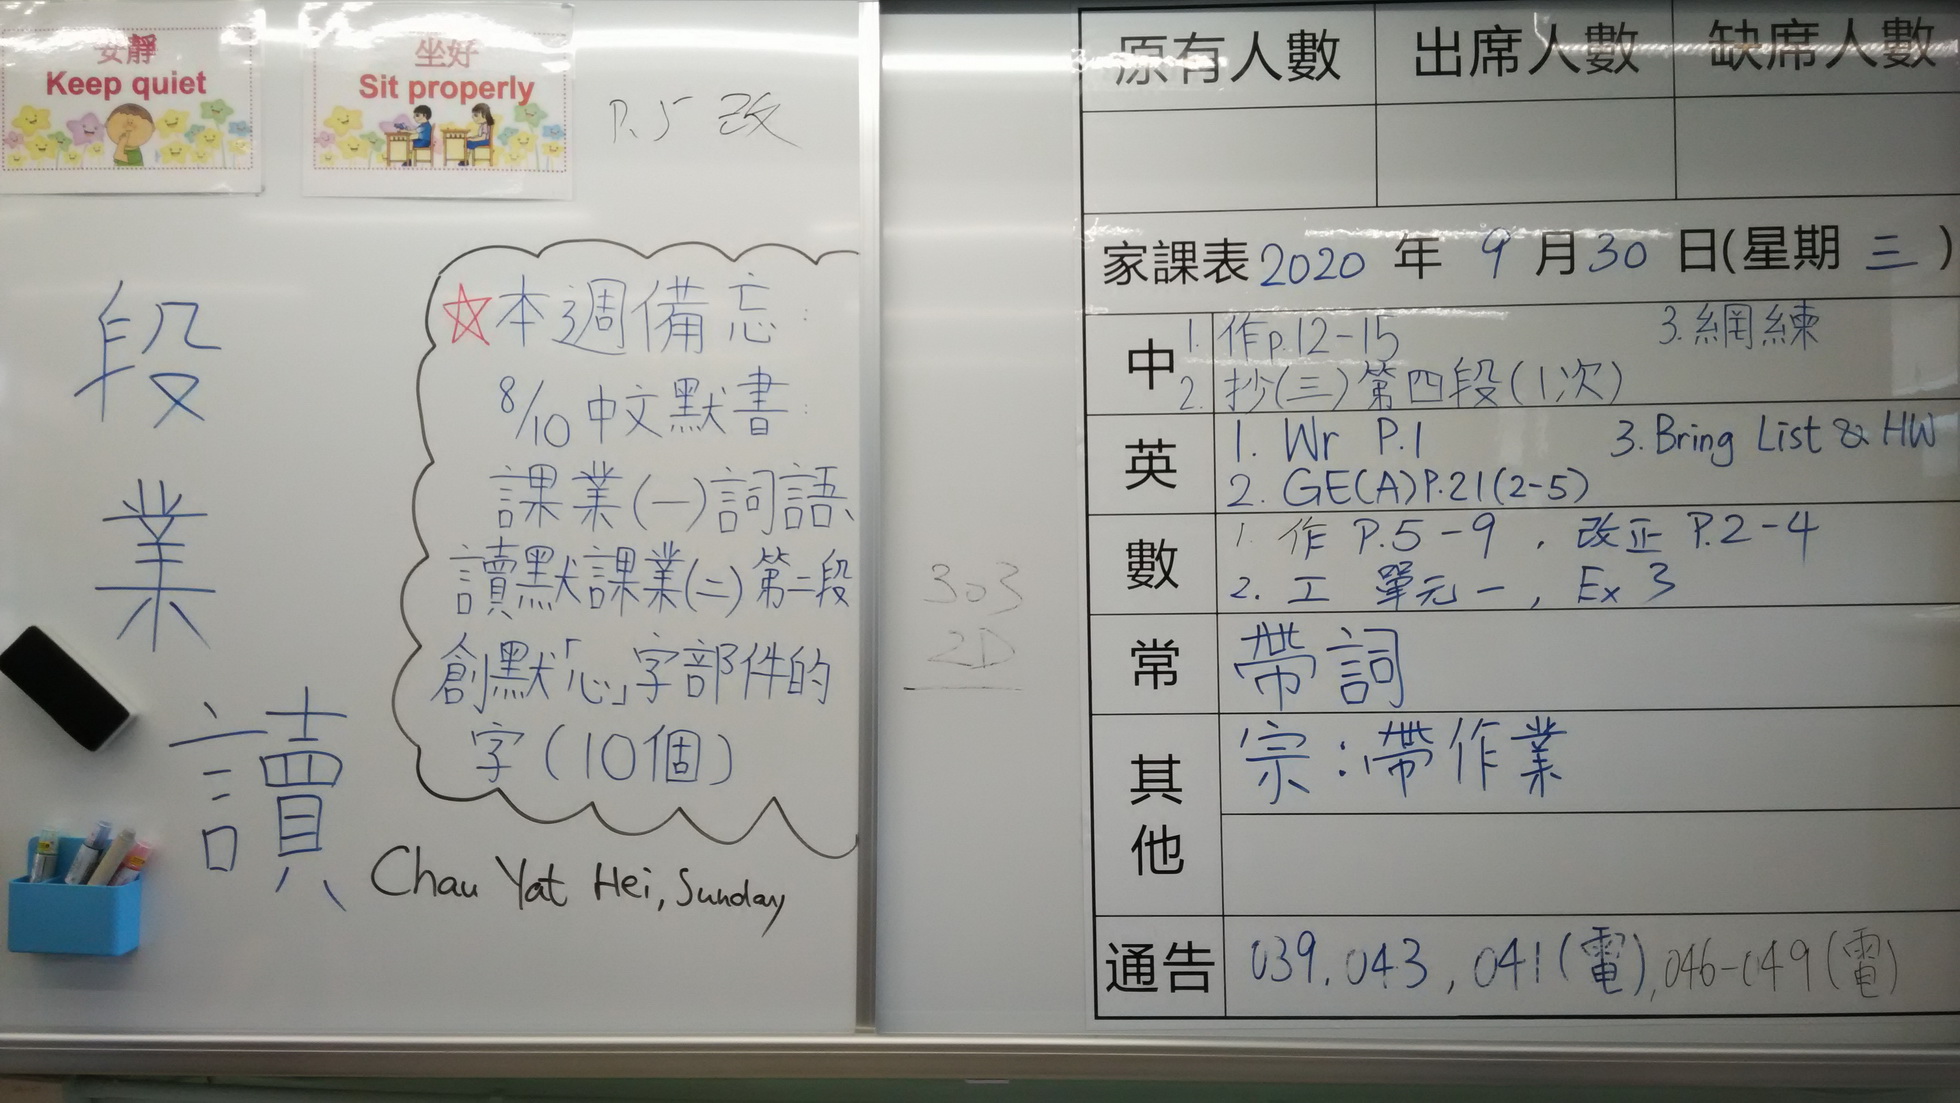 安靜
Keep quiet
坐好
Sit properly
P.5 改
段
業
讀
☆本週備忘:
8/10 中文默書:
課業(一)詞語、
讀默課業(二)第二段
創默「心」字部件的
字(10個)
Chau Yat Hei, Sunday
303
2D
原有人數 出席人數 缺席人數
家課表 2020 年 9 月 30 日(星期 三 )
中 1. 作p.12-15 3.網練
2. 抄(三)第四段(1次)
英 1. Wr P.1 3.Bring List & HW
2. GE(A)P.21(2-5)
數 1. 作 P.5-9 , 改正 P.2-4
2. 工 單元一 , Ex 3
常 帶詞
其他 宗:帶作業
通告 039, 043, 041(電), 046-049(電)